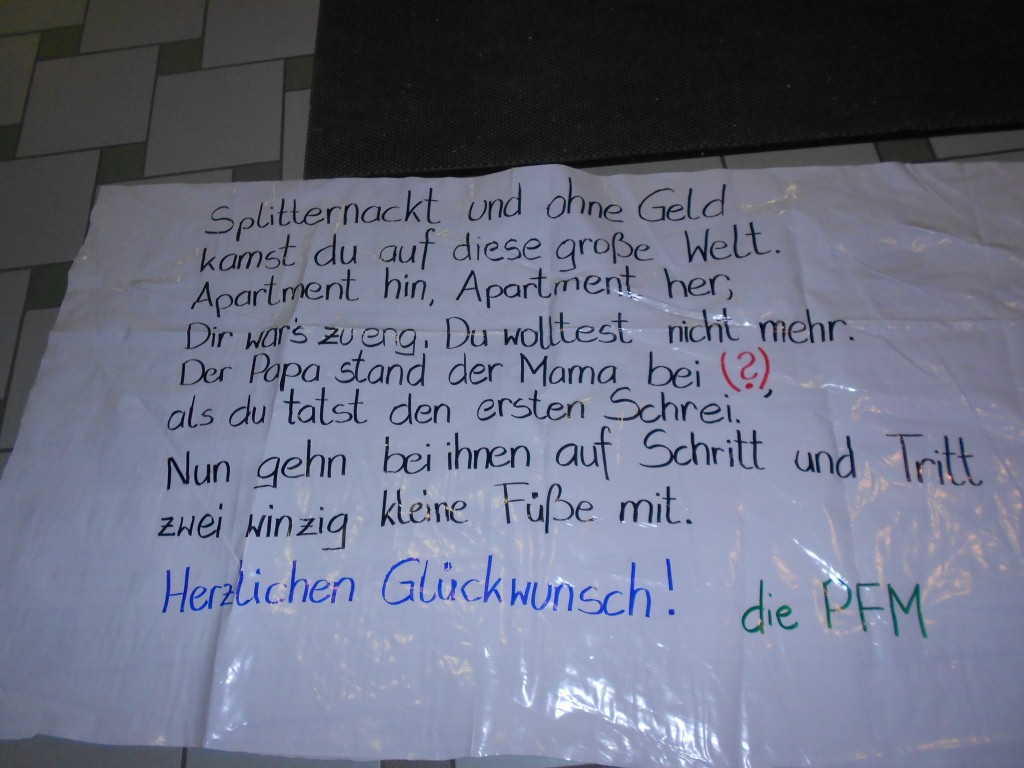 Splitternackt und ohne Geld
kamst du auf diese große Welt.
Apartment hin, Apartment her,
Dir war's zu eng. Du wolltest nicht mehr.
Der Papa stand der Mama bei (?),
als du tatst den ersten Schrei.
Nun gehn bei ihnen auf Schritt und Tritt
zwei winzig kleine Füße mit.
Herzlichen Glückwunsch!
die PFM